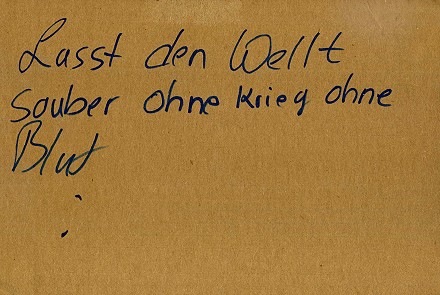 Lasst den Wellt
souber ohne Krieg ohne
Blut
: